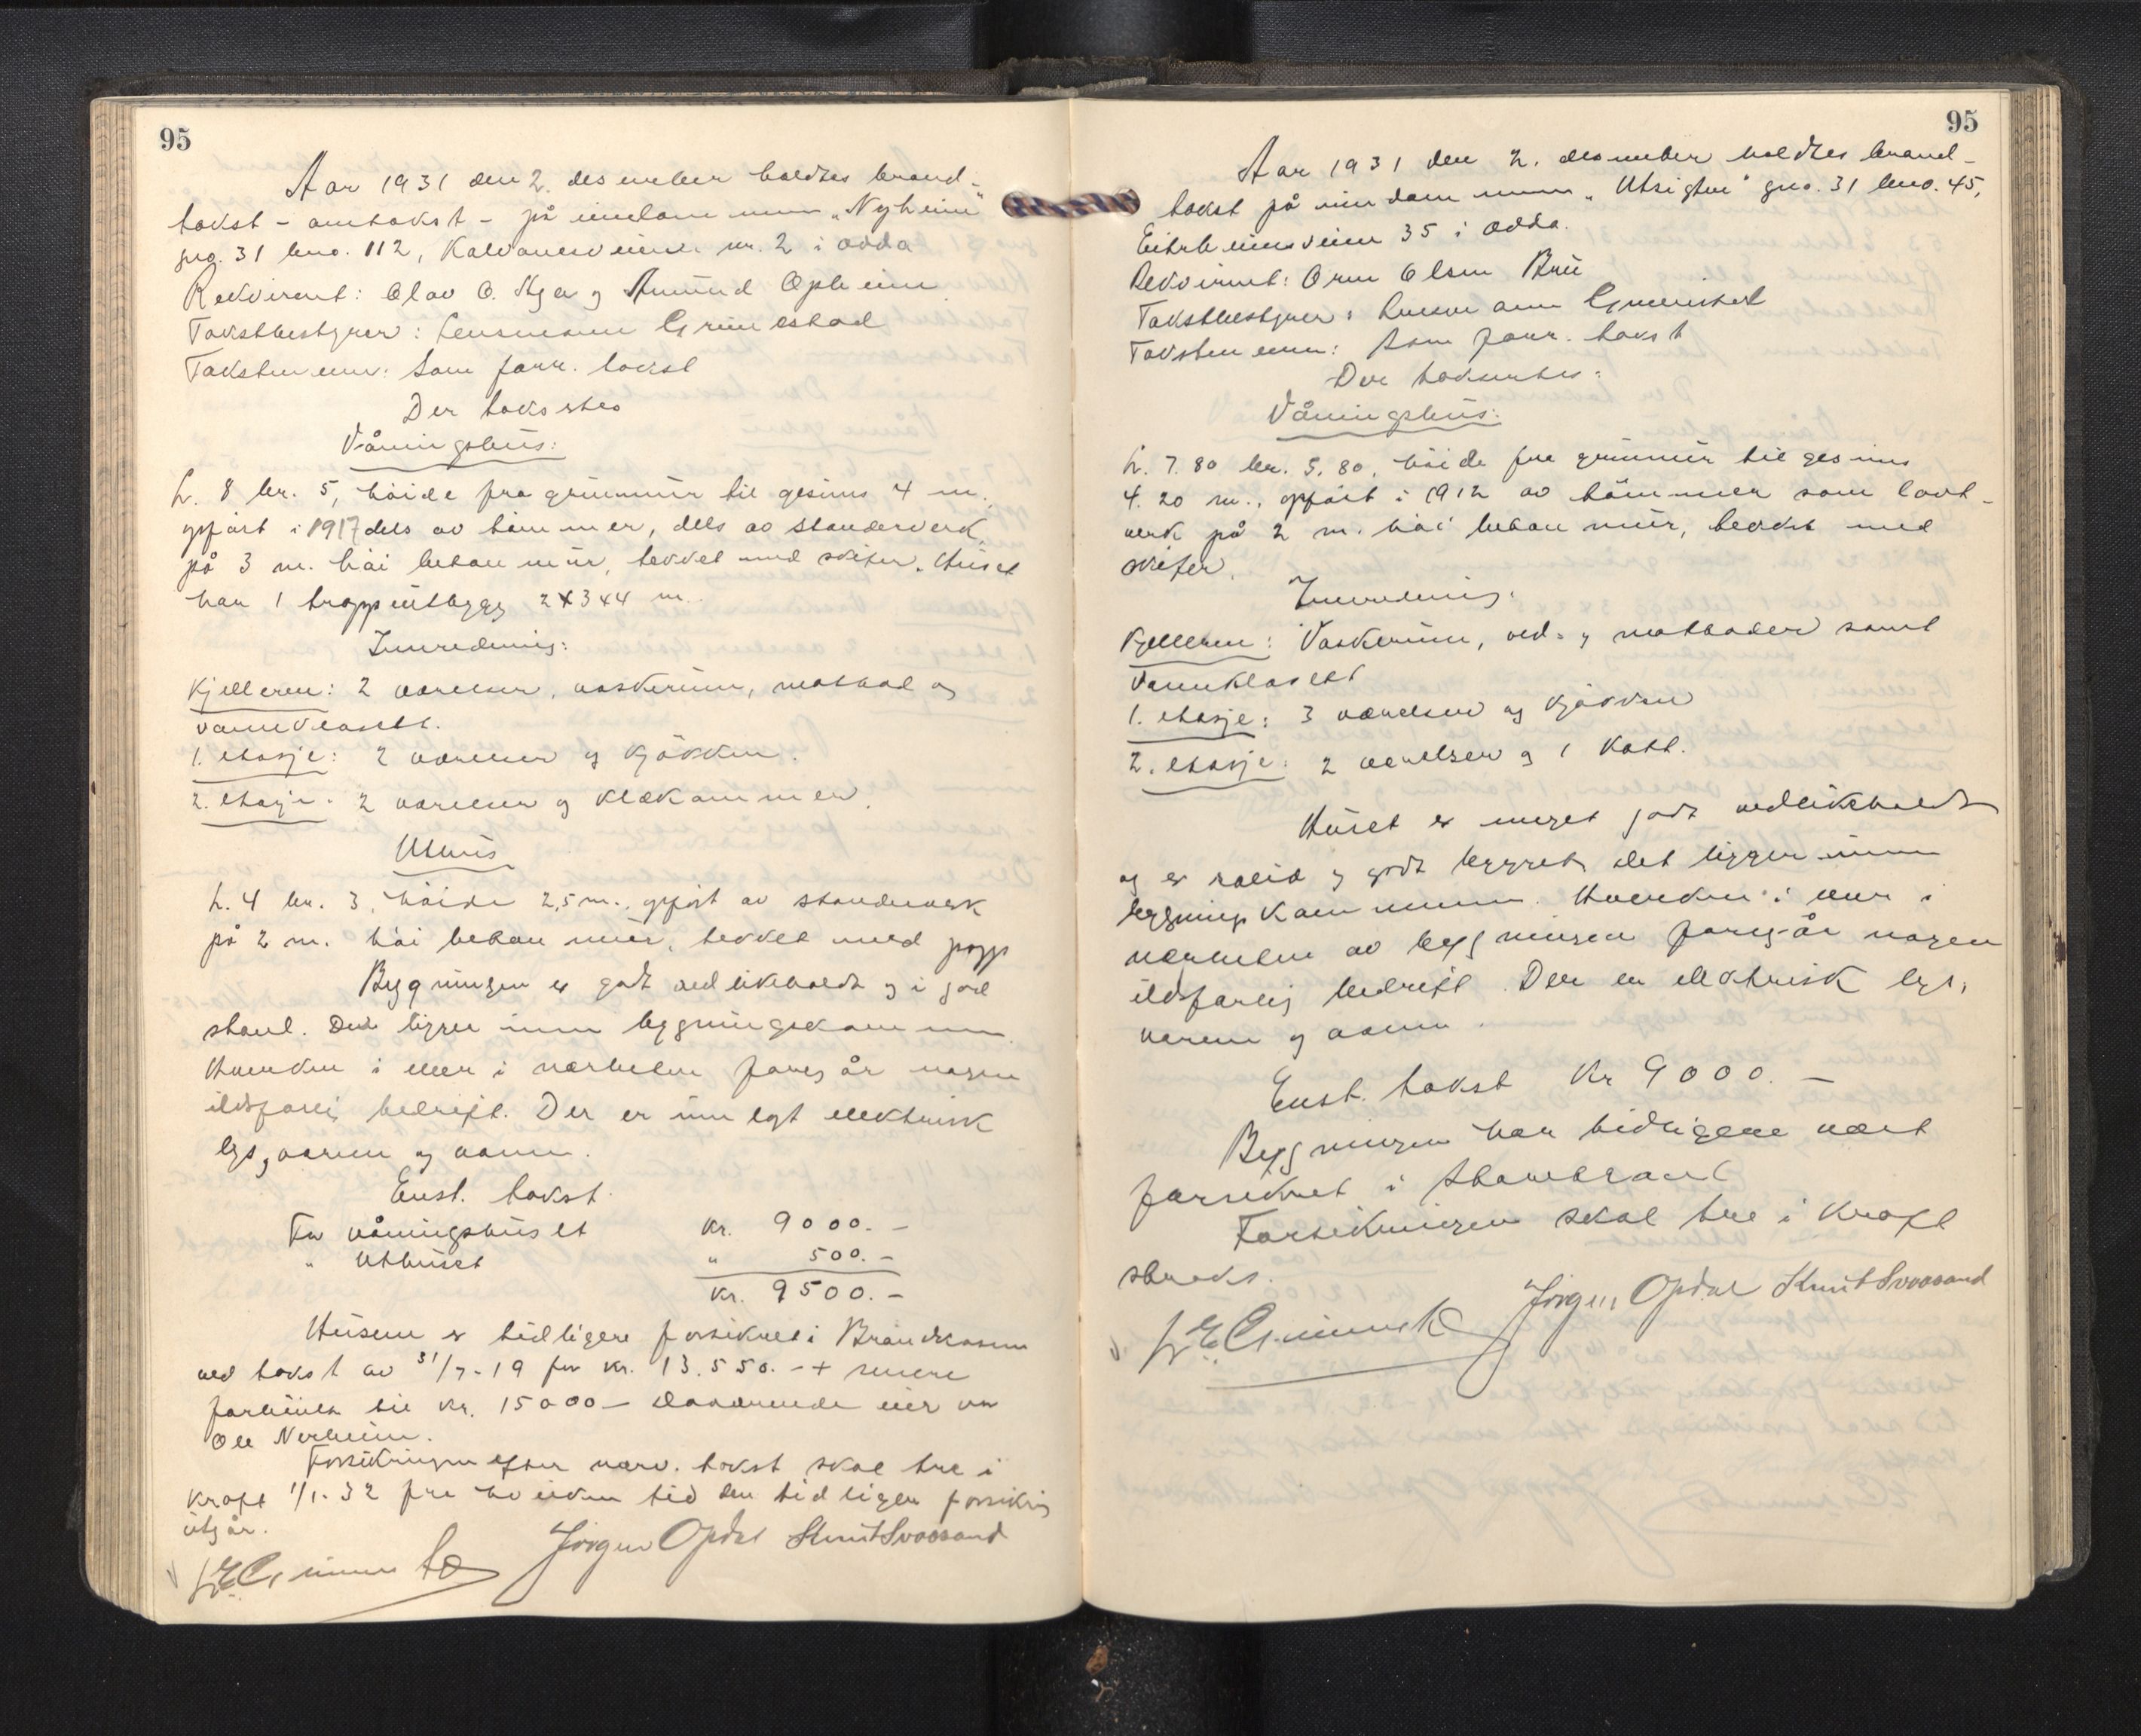 95
Aar 1931 den 2. desember holdtes brand-
takst - omtakst - på eiendommen „Nyheim"
gno. 31 bno. 112, Kalvanesveien nr. 2 i Odda
Rekvirent: Olav O. Aga og Amund Opheim
Takstbestyrer: Lensmann Grimestad
Takstmenn: Som forr. takst
Der takseres
Våningshus:
L. 8 br. 5, høide fra grunnmur til gesims 4 m.
opført i 1917 dels av tømmer, dels av standerverk
på 3 m. høi betonmur, tekket med skifer. Huset
har 1 trappeutbygg 2x3x4 m.
Innredning:
Kjelleren: 2 værelser, vaskerum, matbod og
vannklosett.
1. etasje: 2 værelser og kjøkken.
2. etasje: 2 værelser og klækammer.
Uthus
L. 4 br. 3, høide 2,5 m., opført av standerverk
på 2 m. høi betonmur, tekket med papp
Bygningen er godt vedlikeholdt og i god
stand. Den ligger innen bygningskommunen.
Hverken i eller i nærheten foregår nogen
ildsfarlig bedrift. Der er innlagt elektrisk
lys, varme og vann.
Enst. takst.
For våningshuset kr. 9000.-
" Uthuset " 500.-
kr. 9500.-
Husene er tidligere forsikret i Brandkassen
ved takst av 31/7-19 for kr. 13.550.-+ senere
forhøiet til kr. 15000- Daværende eier var
Ole Nerheim.
Forsikringen efter nærv. takst skal tre i
kraft 1/1-32 fra hvilken tid den tidligere forsikring
utgår.
Jørgen Opdal Knut Svoosand
95
Aar 1931 den 2. desember holdtes brand-
takst på eiendommen „Utsigten" gno. 31 bno. 45,
Eitrheimsveien 35 i Odda.
Rekvirent: Orm Olsen Bui
Takstbestyrer: Lensmann Grimestad
Takstmenn: Som forr. takst
Der takseres:
Våningshus:
L. 7.80 br. 5.80, høide fra grunnmur til gesims
4.20 m., opført i 1912 av tømmer som lavt-
verk på 2 m. høi betonmur, tekket med
skifer.
Innredning:
Kjelleren: Vaskerum, ved- og matboder samt
vannklosett
1. etasje: 3 værelser og kjøkken
2. etasje: 2 værelser og 1 kott.
Huset er meget godt vedlikeholdt
og er solid og godt bygget, det ligger innen
bygningskommunen. Hverken i eller i
nærheten av bygningen foregår nogen
ildsfarlig bedrift. Der er elektrisk lys,
varme og vann.
Enst. takst kr 9000.-
Bygningen har tidligere vært
forsikret i Storebrand
Forsikringen skal tre i kraft
straks.
Jørgen Opdal Knut Svoosand